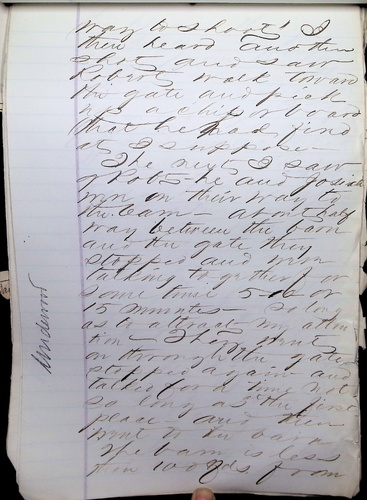 way to shoot! I
then heard another
shot and saw
Robert walk toward
the gate and pick
up a chip or board
that he had fired
at I suppose -
The next I saw
of Rob't - he and Josiah
were on their way to
the barn - about half
way between the barn
and the gate they
stopped and were
talking together for
some time 5-10 or
15 minutes - so long
as to attract my atten
tion - They went
on through the gate
stopped again and
talked for a time not
so long as the first
place - and then
went to the barn
The barn is less
than 100 yds from
Underwood